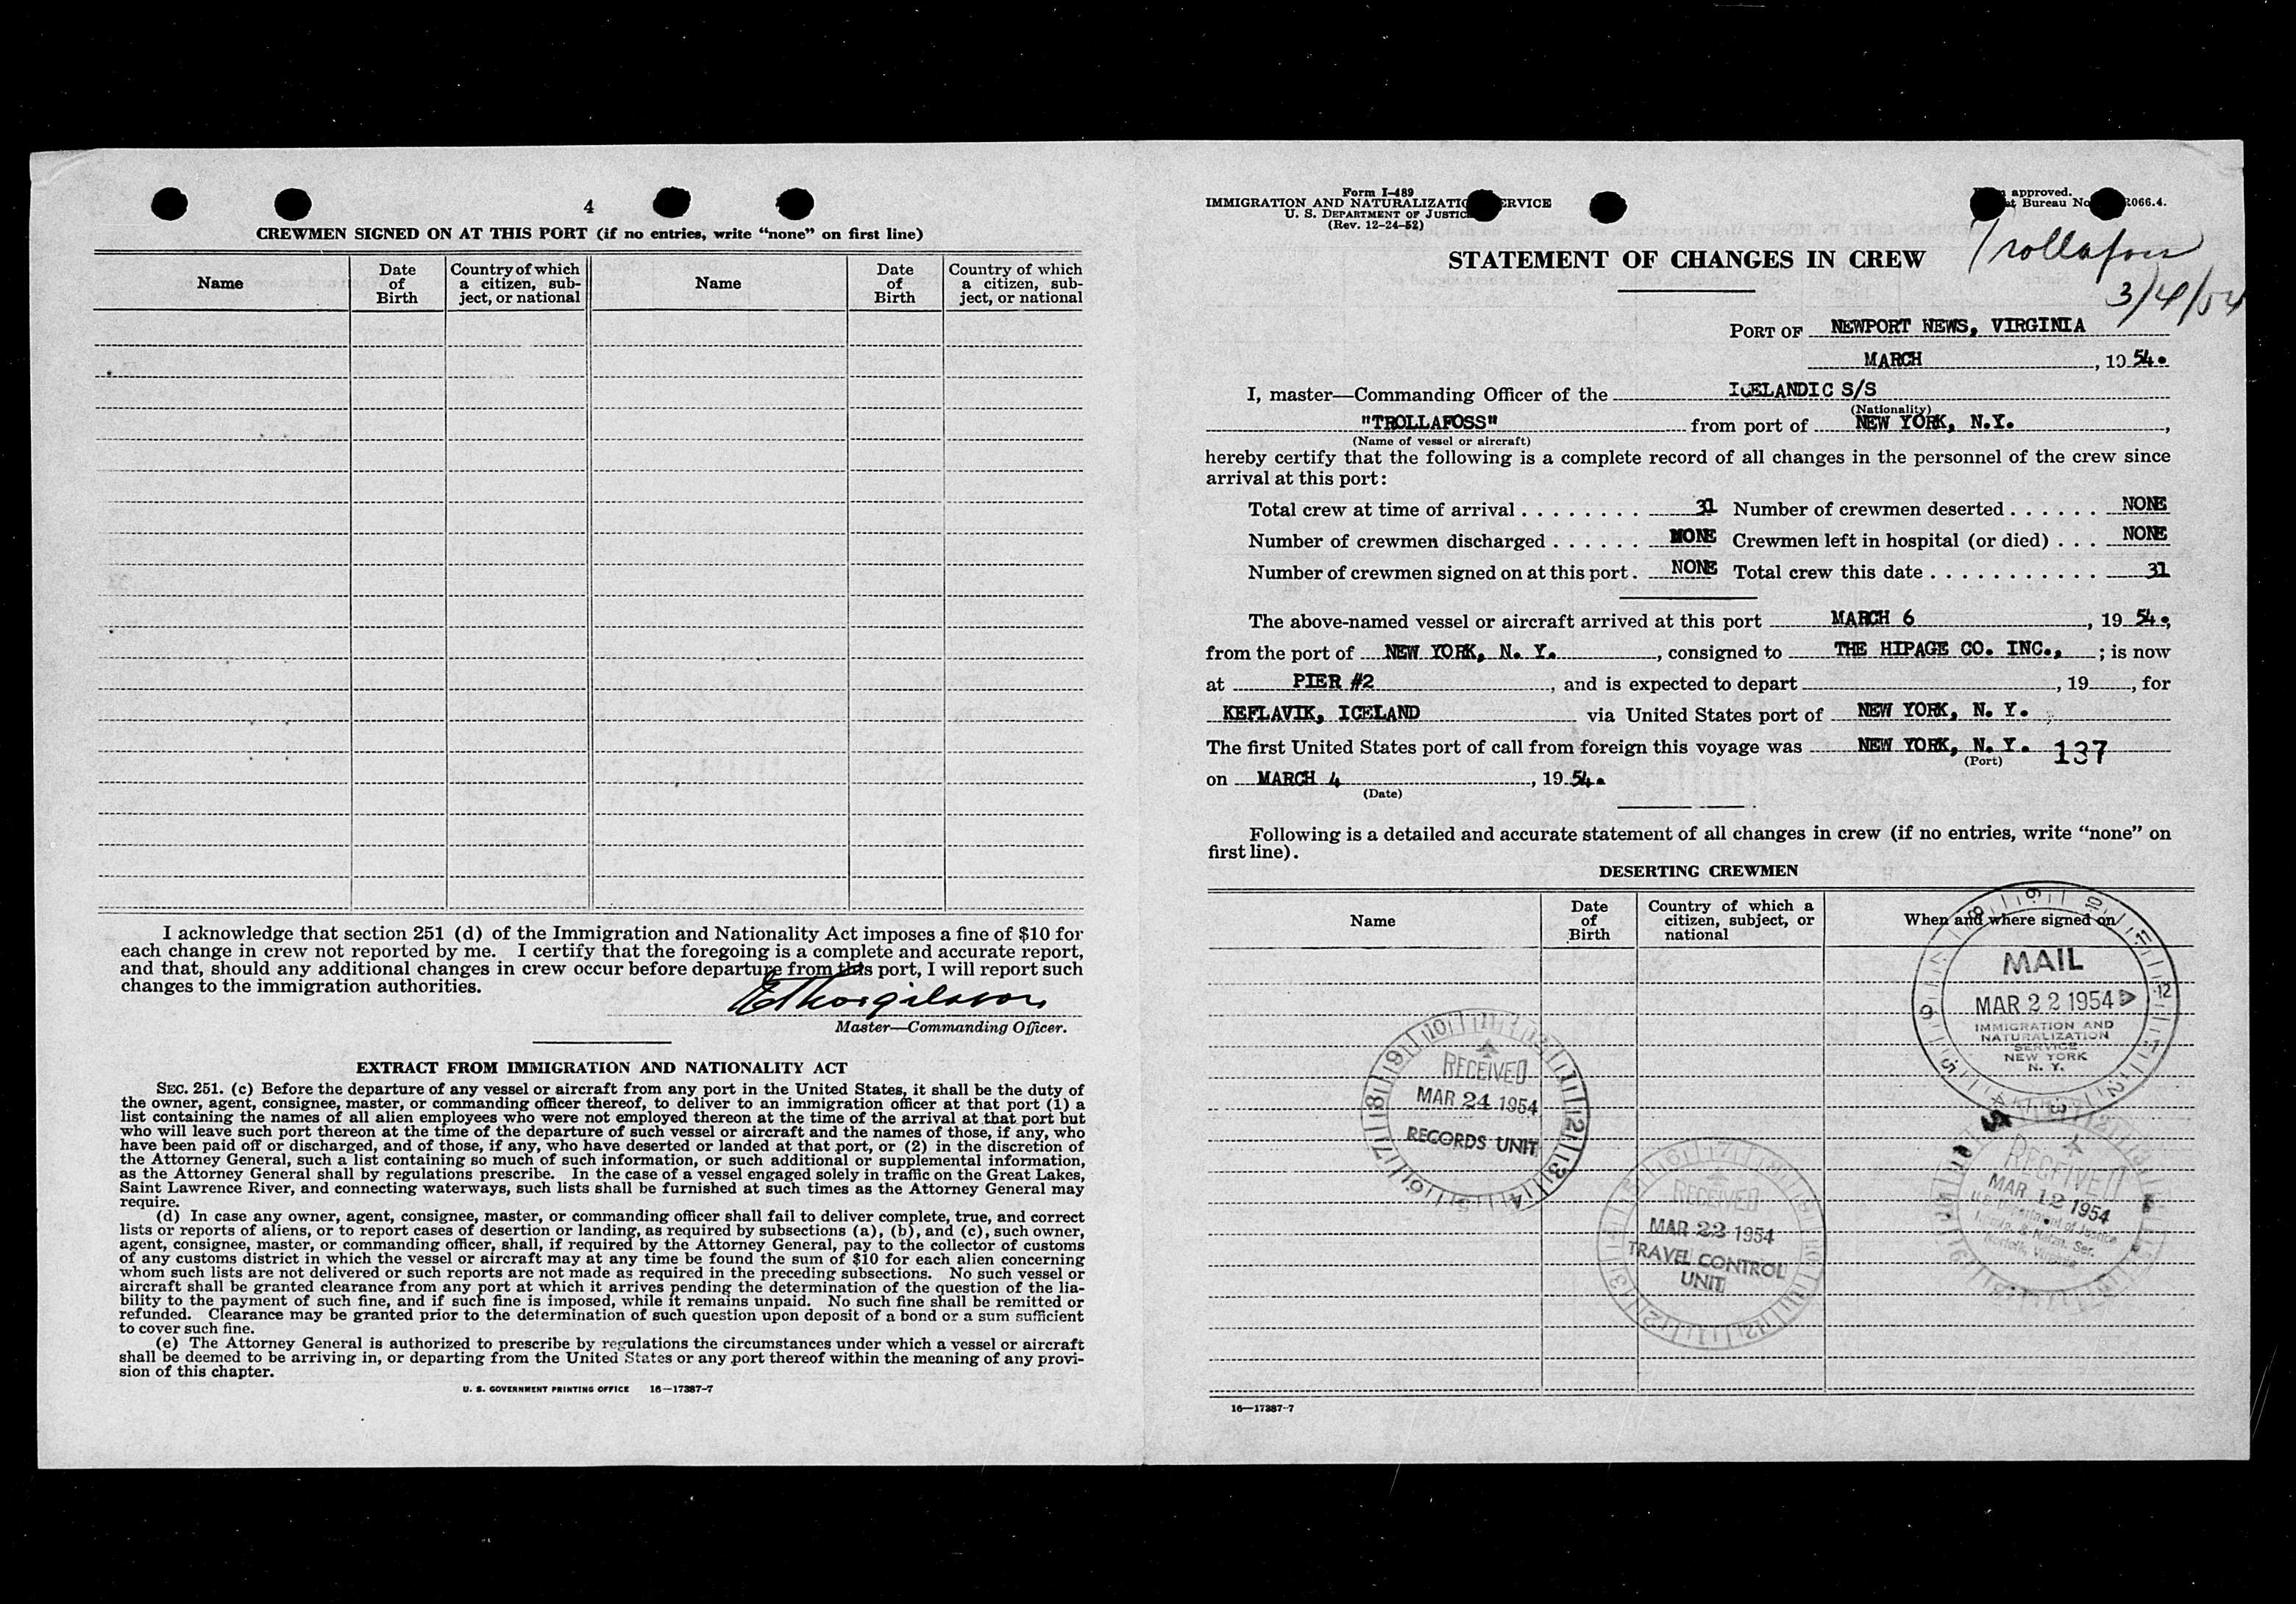 4
CREWMEN SIGNED ON AT THIS PORT (if no entries, write "none" on first line)
Name
Date of Birth
Country of which a citizen, subject, or national
Name
Date of Birth
Country of which a citizen, subject, or national
I acknowledge that section 251 (d) of the Immigration and Nationality Act imposes a fine of $10 for
each change in crew not reported by me. I certify that the foregoing is a complete and accurate report,
and that, should any additional changes in crew occur before departure from this port, I will report such
changes to the immigration authorities.
EThorgilsson
Master—Commanding Officer.
EXTRACT FROM IMMIGRATION AND NATIONALITY ACT
SEC. 251. (c) Before the departure of any vessel or aircraft from any port in the United States, it shall be the duty of
the owner, agent, consignee, master, or commanding officer thereof, to deliver to an immigration officer at that port (1) a
list containing the names of all alien employees who were not employed thereon at the time of the arrival at that port but
who will leave such port thereon at the time of the departure of such vessel or aircraft and the names of those, if any, who
have been paid off or discharged, and of those, if any, who have deserted or landed at that port, or (2) in the discretion of
the Attorney General, such a list containing so much of such information, or such additional or supplemental information,
as the Attorney General shall by regulations prescribe. In the case of a vessel engaged solely in traffic on the Great Lakes,
Saint Lawrence River, and connecting waterways, such lists shall be furnished at such times as the Attorney General may
require.
(d) In case any owner, agent, consignee, master, or commanding officer shall fail to deliver complete, true, and correct
lists or reports of aliens, or to report cases of desertion or landing, as required by subsections (a), (b), and (c), such owner,
agent, consignee, master, or commanding officer, shall, if required by the Attorney General, pay to the collector of customs
of any customs district in which the vessel or aircraft may at any time be found the sum of $10 for each alien concerning
whom such lists are not delivered or such reports are not made as required in the preceding subsections. No such vessel or
aircraft shall be granted clearance from any port at which it arrives pending the determination of the question of the lia-
bility to the payment of such fine, and if such fine is imposed, while it remains unpaid. No such fine shall be remitted or
refunded. Clearance may be granted prior to the determination of such question upon deposit of a bond or a sum sufficient
to cover such fine.
(e) The Attorney General is authorized to prescribe by regulations the circumstances under which a vessel or aircraft
shall be deemed to be arriving in, or departing from the United States or any port thereof within the meaning of any provi-
sion of this chapter.
U. S. GOVERNMENT PRINTING OFFICE 16—17387-7
Form I-489
IMMIGRATION AND NATURALIZATIO ERVICE
U. S. DEPARTMENT OF JUSTIC
(Rev. 12-24-52)
approved.
et Bureau No 066.4.
Trollafoss
3/4/54
STATEMENT OF CHANGES IN CREW
PORT OF NEWPORT NEWS, VIRGINIA
MARCH, 19 54.
I, master—Commanding Officer of the ICELANDIC S/S
(Nationality)
"TROLLAFOSS" from port of NEW YORK, N.Y.,
(Name of vessel or aircraft)
hereby certify that the following is a complete record of all changes in the personnel of the crew since
arrival at this port:
Total crew at time of arrival 31 Number of crewmen deserted NONE
Number of crewmen discharged NONE Crewmen left in hospital (or died) NONE
Number of crewmen signed on at this port. NONE Total crew this date 31
The above-named vessel or aircraft arrived at this port MARCH 6, 19 54.,
from the port of NEW YORK, N. Y., consigned to THE HIPAGE CO. INC., ; is now
at PIER #2, and is expected to depart , 19 , for
KEFLAVIK, ICELAND via United States port of NEW YORK, N. Y.
The first United States port of call from foreign this voyage was NEW YORK, N. Y. 137
(Port)
on MARCH 4, 19 54.
(Date)
Following is a detailed and accurate statement of all changes in crew (if no entries, write "none" on
first line).
DESERTING CREWMEN
Name
Date of Birth
Country of which a citizen, subject, or national
When and where signed on
MAIL
MAR 22 1954
IMMIGRATION AND
NATURALIZATION
SERVICE
NEW YORK
N. Y.
RECEIVED
MAR 24 1954
RECORDS UNIT
RECEIVED
MAR 23 1954
TRAVEL CONTROL
UNIT
RECEIVED
MAR 12 1954
U.S. Department of Justice
Immig. & Natzn. Ser.
Norfolk, Virginia
16—17387-7